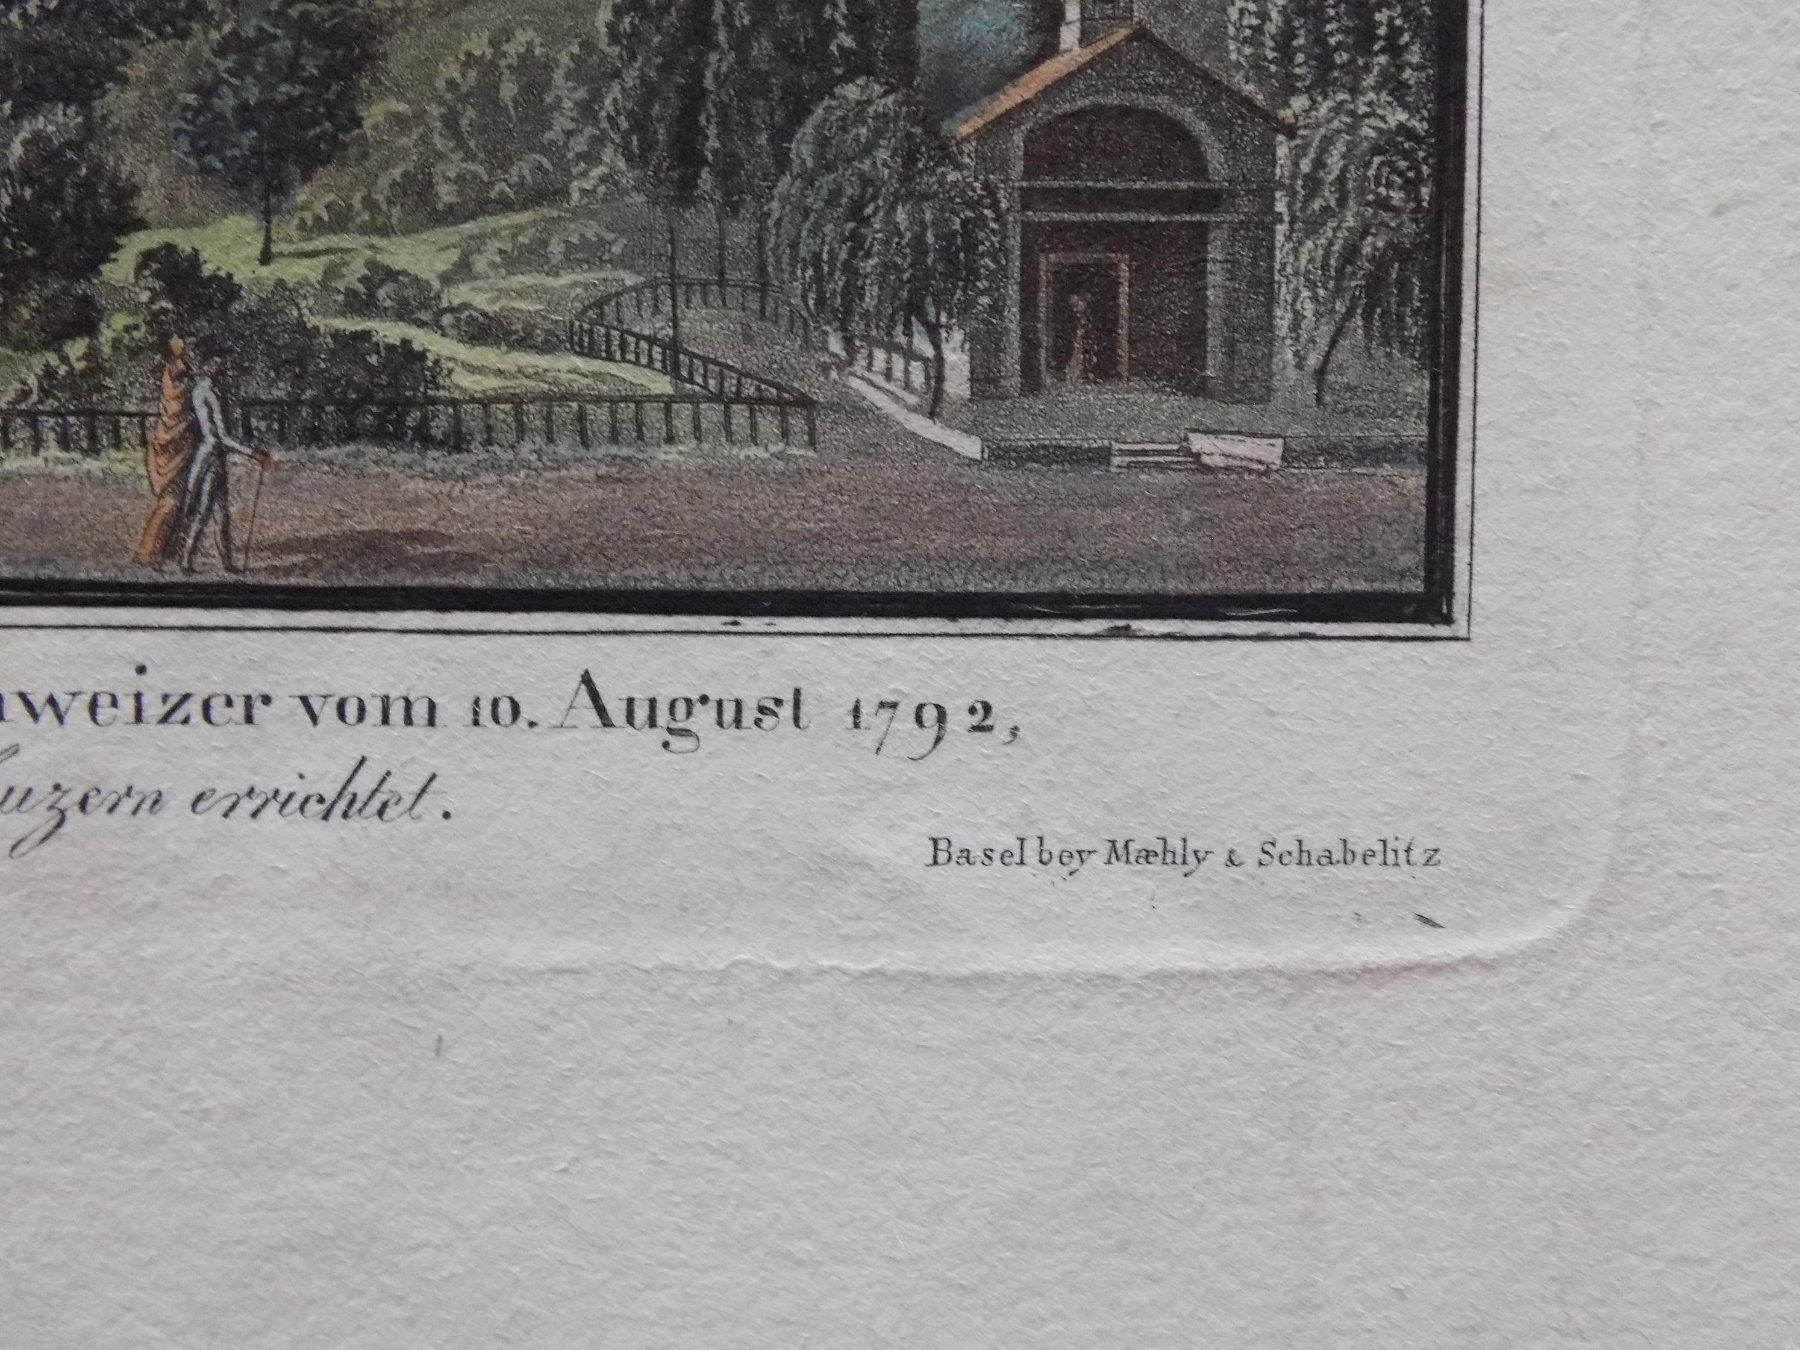 hweizer vom 10. August 1792,
Luzern errichtet.
Basel bey Mæhly & Schabelitz